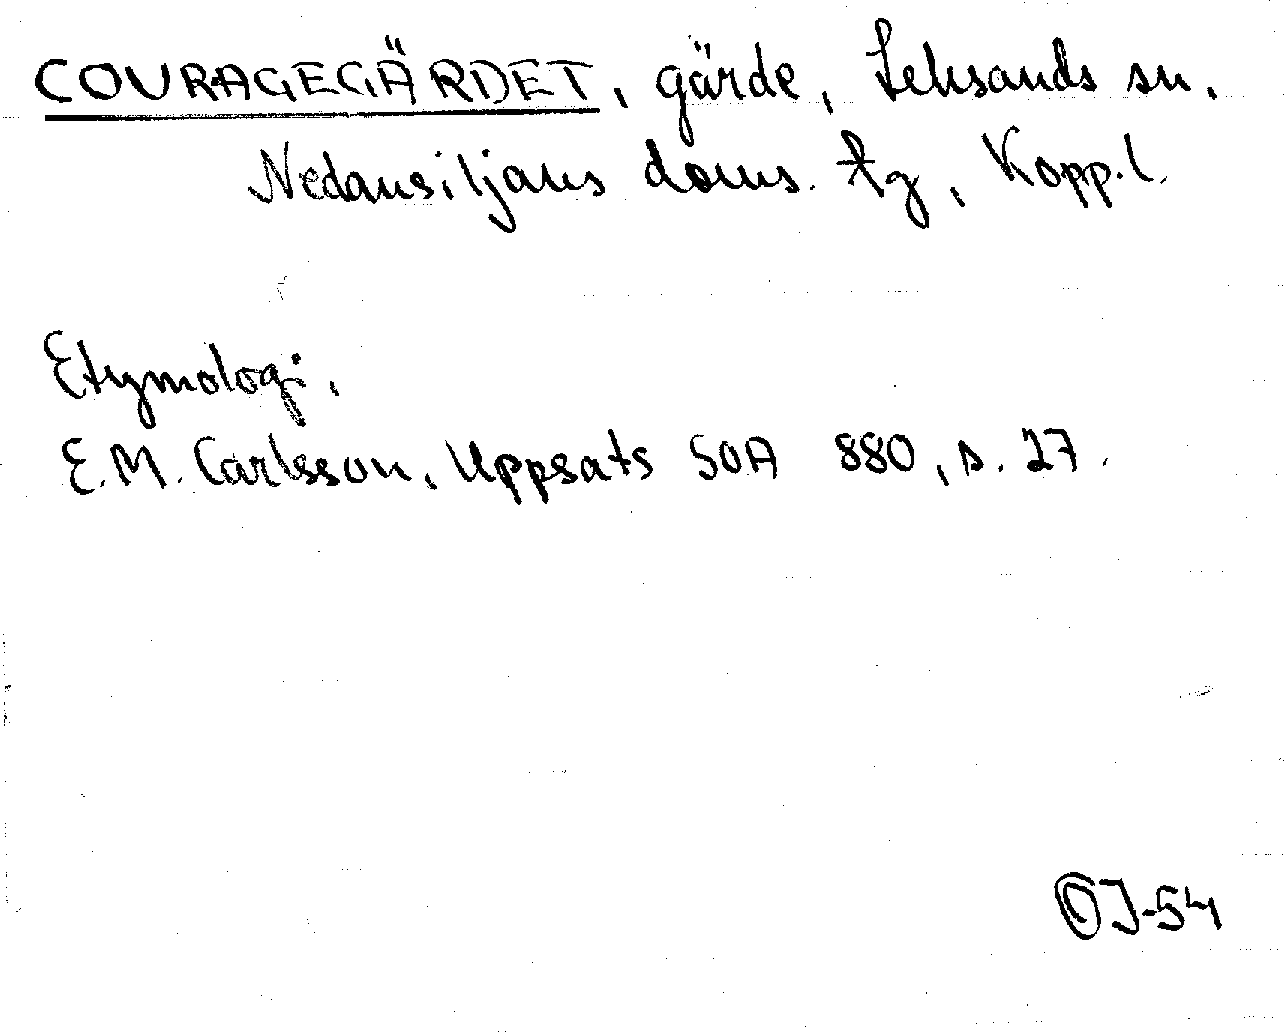 COURAGEGÄRDET, gärde, Leksands sn.
Nedansiljans doms. tg, Kopp.l.
Etymologi.
E.M. Carlsson, Uppsats SOA 880, s. 27.
OJ-54